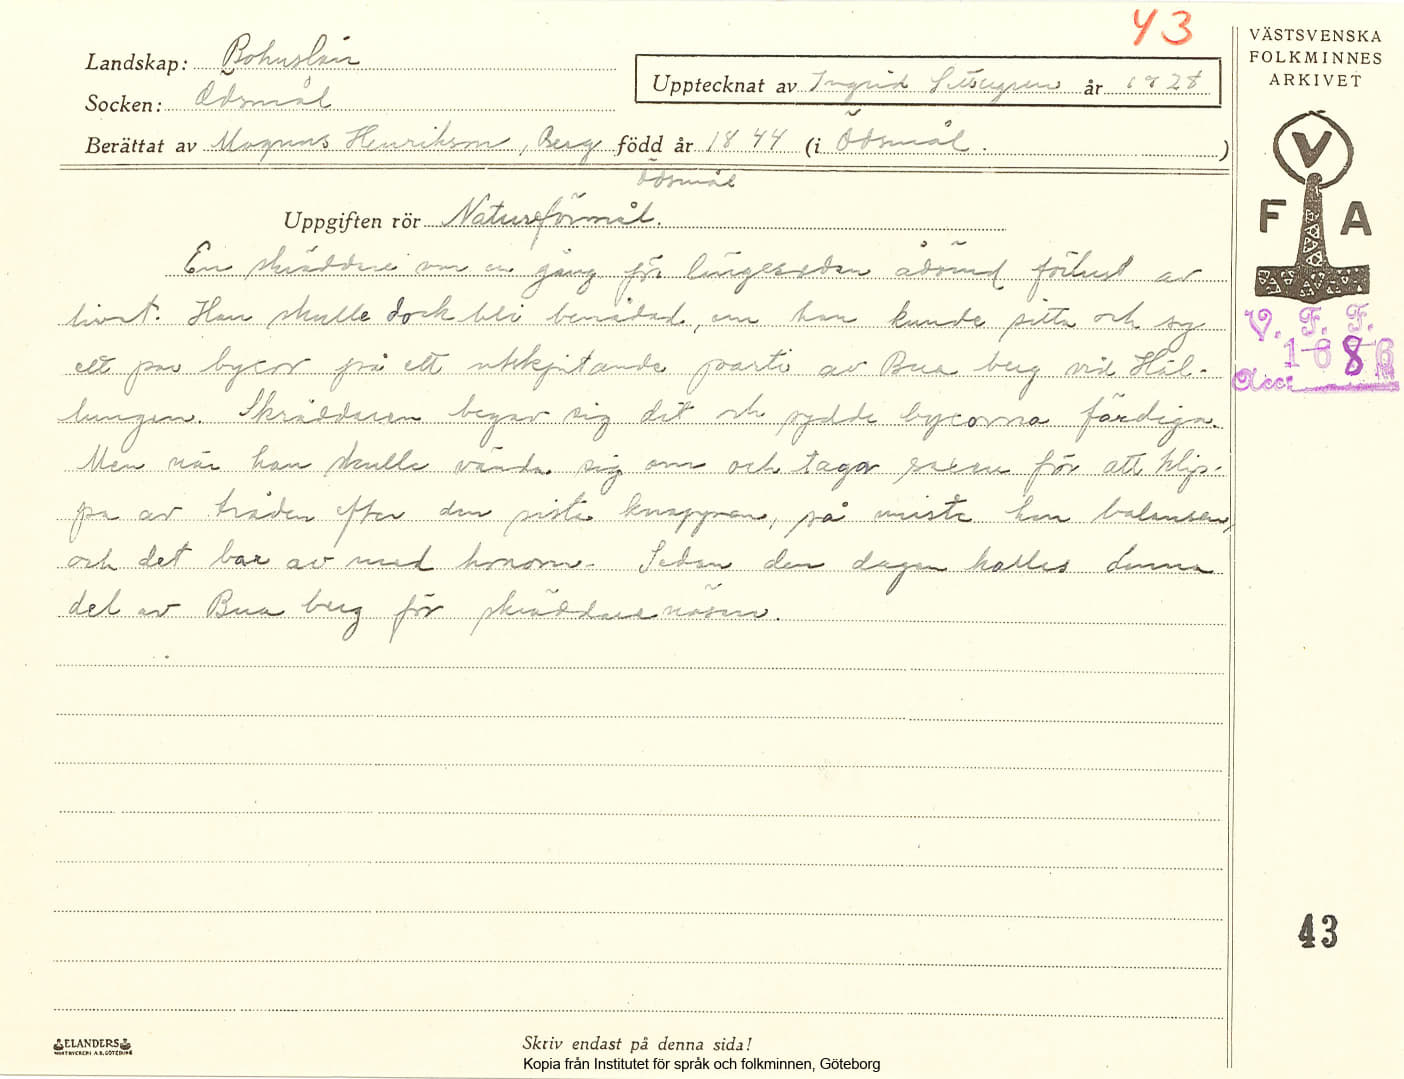 43
VÄSTSVENSKA
FOLKMINNES
ARKIVET
Landskap: Bohuslän
Socken: Ödsmål
Upptecknat av Ingrid år 1928
Berättat av Magnus Henrikson, Berg född år 1844 (i Ödsmål.)
Ödsmål
Uppgiften rör Naturföremål.
V
F A
V. F. F.
1686
8
Acc:
En skräddare var en gång för länge sedan dömd förlust av
livet. Han skulle dock bli benådad, om han kunde sitta och sy
ett par byxor på ett utskjutande parti av Bua berg vid Häl-
lungen. Skräddaren begav sig dit och sydde byxorna färdiga.
Men när han skulle vända sig om och taga saxen för att klip-
pa av tråden efter den sista knappen, så miste han balansen,
och det bar av med honom. Sedan den dagen kallas denna
del av Bua berg för skräddarenäsan.
43
ELANDERS
BOKTRYCKERI A.B. GÖTEBORG
Skriv endast på denna sida!
Kopia från Institutet för språk och folkminnen, Göteborg